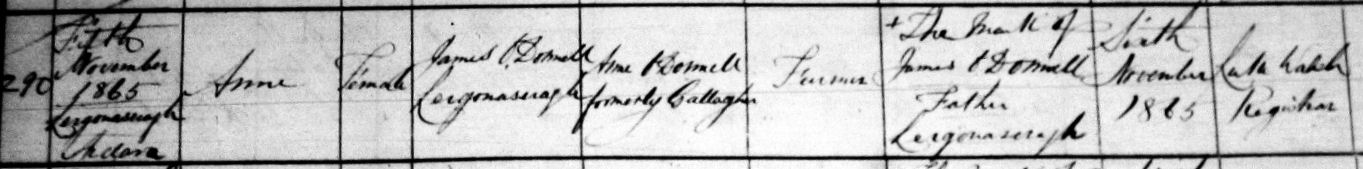 290
Fifth
November
1865
Lergonaseragh
Anne
Female
James O'Donnell
Lergonaseragh
Anne O'Donnell
formerly Gallagher
Farmer
+ The Mark of
James O'Donnell
Father
Lergonaseragh
Sixth
November
1865
Registrar